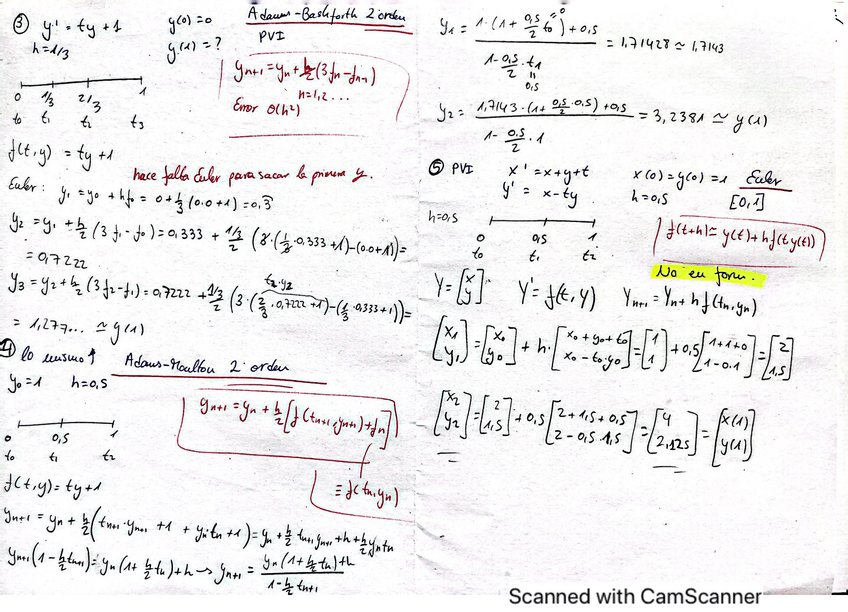 ③ y' = ty + 1   y(0) = 0   Adams-Bashforth 2º orden
h = 1/3   y(1) = ?   PVI
y_{n+1} = y_n + h/2 (3f_n - f_{n-1})
n = 1, 2 ...
Error O(h²)
0   1/3   2/3   1
t₀   t₁   t₂   t₃
f(t,y) = ty + 1
hace falta Euler para sacar la primera y.
Euler: y₁ = y₀ + hf₀ = 0 + 1/3 (0·0+1) = 0,3
y₂ = y₁ + h/2 (3f₁ - f₀) = 0,333 + (1/3)/2 (3·(1/3·0,333+1) - (0·0+1)) =
= 0,7222
t₂·y₂
y₃ = y₂ + h/2 (3f₂ - f₁) = 0,7222 + (1/3)/2 (3·(2/3·0,7222+1) - (1/3·0,333+1)) =
= 1,277... ≃ y(1)
④ lo mismo ↑   Adams-Moulton 2º orden
y₀ = 1   h = 0,5
y_{n+1} = y_n + h/2 [f(t_{n+1}, y_{n+1}) + f_n]
≡ f(t_n, y_n)
0   0,5   1
t₀   t₁   t₂
f(t,y) = ty + 1
y_{n+1} = y_n + h/2 (t_{n+1}·y_{n+1} + 1 + y_n·t_n + 1) = y_n + h/2 t_{n+1} y_{n+1} + h + h/2 y_n t_n
y_{n+1} (1 - h/2 t_{n+1}) = y_n (1 + h/2 t_n) + h → y_{n+1} = (y_n (1 + h/2 t_n) + h) / (1 - h/2 t_{n+1})
y₁ = (1·(1 + 0,5/2 t₀) + 0,5) / (1 - 0,5/2 · t₁) = 1,71428 ≃ 1,7143
= 0
= 0,5
y₂ = (1,7143·(1 + 0,5/2·0,5) + 0,5) / (1 - 0,5/2 · 1) = 3,2381 ≃ y(1)
⑤ PVI   x' = x + y + t   x(0) = y(0) = 1   Euler
y' = x - ty   h = 0,5   [0,1]
h = 0,5
0   0,5   1
t₀   t₁   t₂
f(t+h) ≃ y(t) + hf(t,y(t))
No en form.
Y = [x y]   Y' = f(t, Y)   Y_{n+1} = Y_n + hf(t_n, y_n)
[x₁ y₁] = [x₀ y₀] + h·[x₀+y₀+t₀ x₀-t₀·y₀] = [1 1] + 0,5 [1+1+0 1-0·1] = [2 1,5]
[x₂ y₂] = [2 1,5] + 0,5 [2+1,5+0,5 2-0,5·1,5] = [4 2,125] = [x(1) y(1)]
Scanned with CamScanner